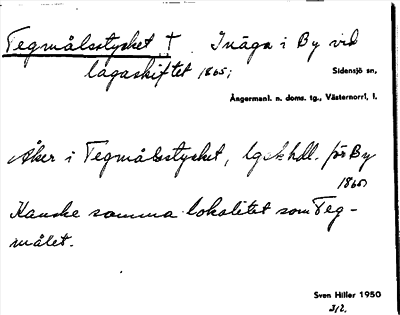 Tegmålsstycket † Inäga i By vid
lagaskiftet 1865;
Sidensjö sn,
Ångermanl. n. doms. tg., Västernorrl. l.
Åker i Tegmålsstycket, lgskhdl. för By
1865
Kanske samma lokalitet som Teg-
målet.
Sven Hiller 1950
3/2.